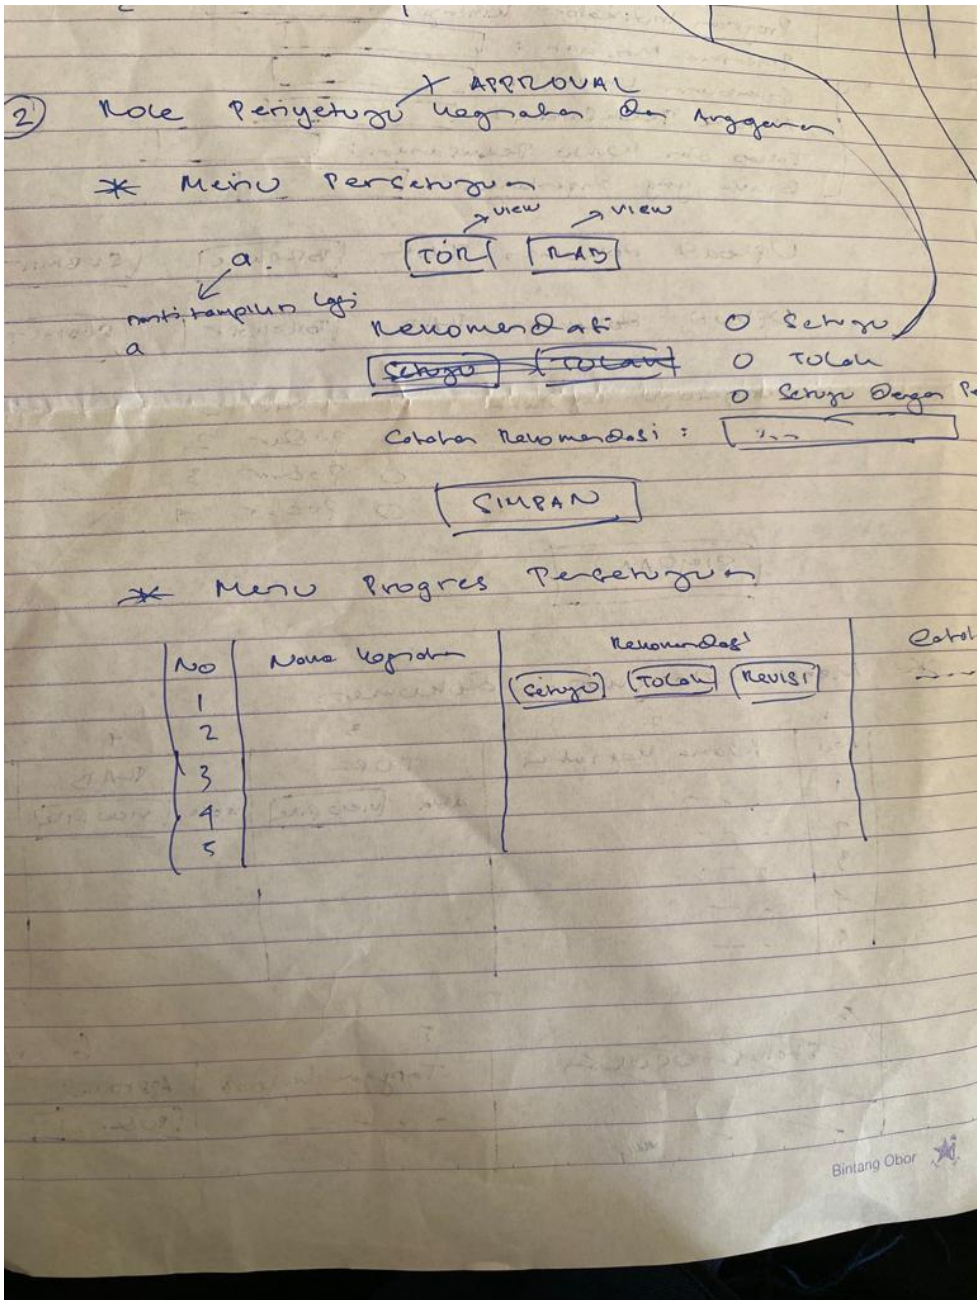 → APPROVAL
② Role Penyetuju Kegiatan dan Anggaran
* Menu Persetujuan
→ view → view
a. [TOR] [RAB]
nanti tampilin lagi
a
Rekomendasi O Setuju
[Setuju] [TOLAK] O TOLAK
O Setuju Dengan Pe
Catatan Rekomendasi : [...]
[SIMPAN]
* Menu Progres Persetujuan
No Nama Kegiatan Rekomendasi Catat
1 [Setuju] [TOLAK] [REVISI] .....
2
3
4
5
Bintang Obor